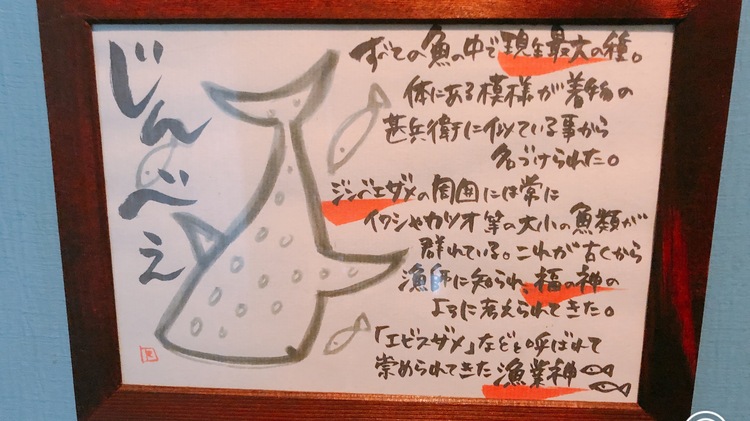 じんべえ
すべての魚の中で現生最大の種。
体にある模様が着物の
甚兵衛に似ている事から
名づけられた。
ジンベエザメの周囲には常に
イワシやカツオ等の大小の魚類が
群れている。これが古くから
漁師に知られ、福の神の
ように考えられてきた。
「エビスザメ」などと呼ばれて
崇められてきた漁業神